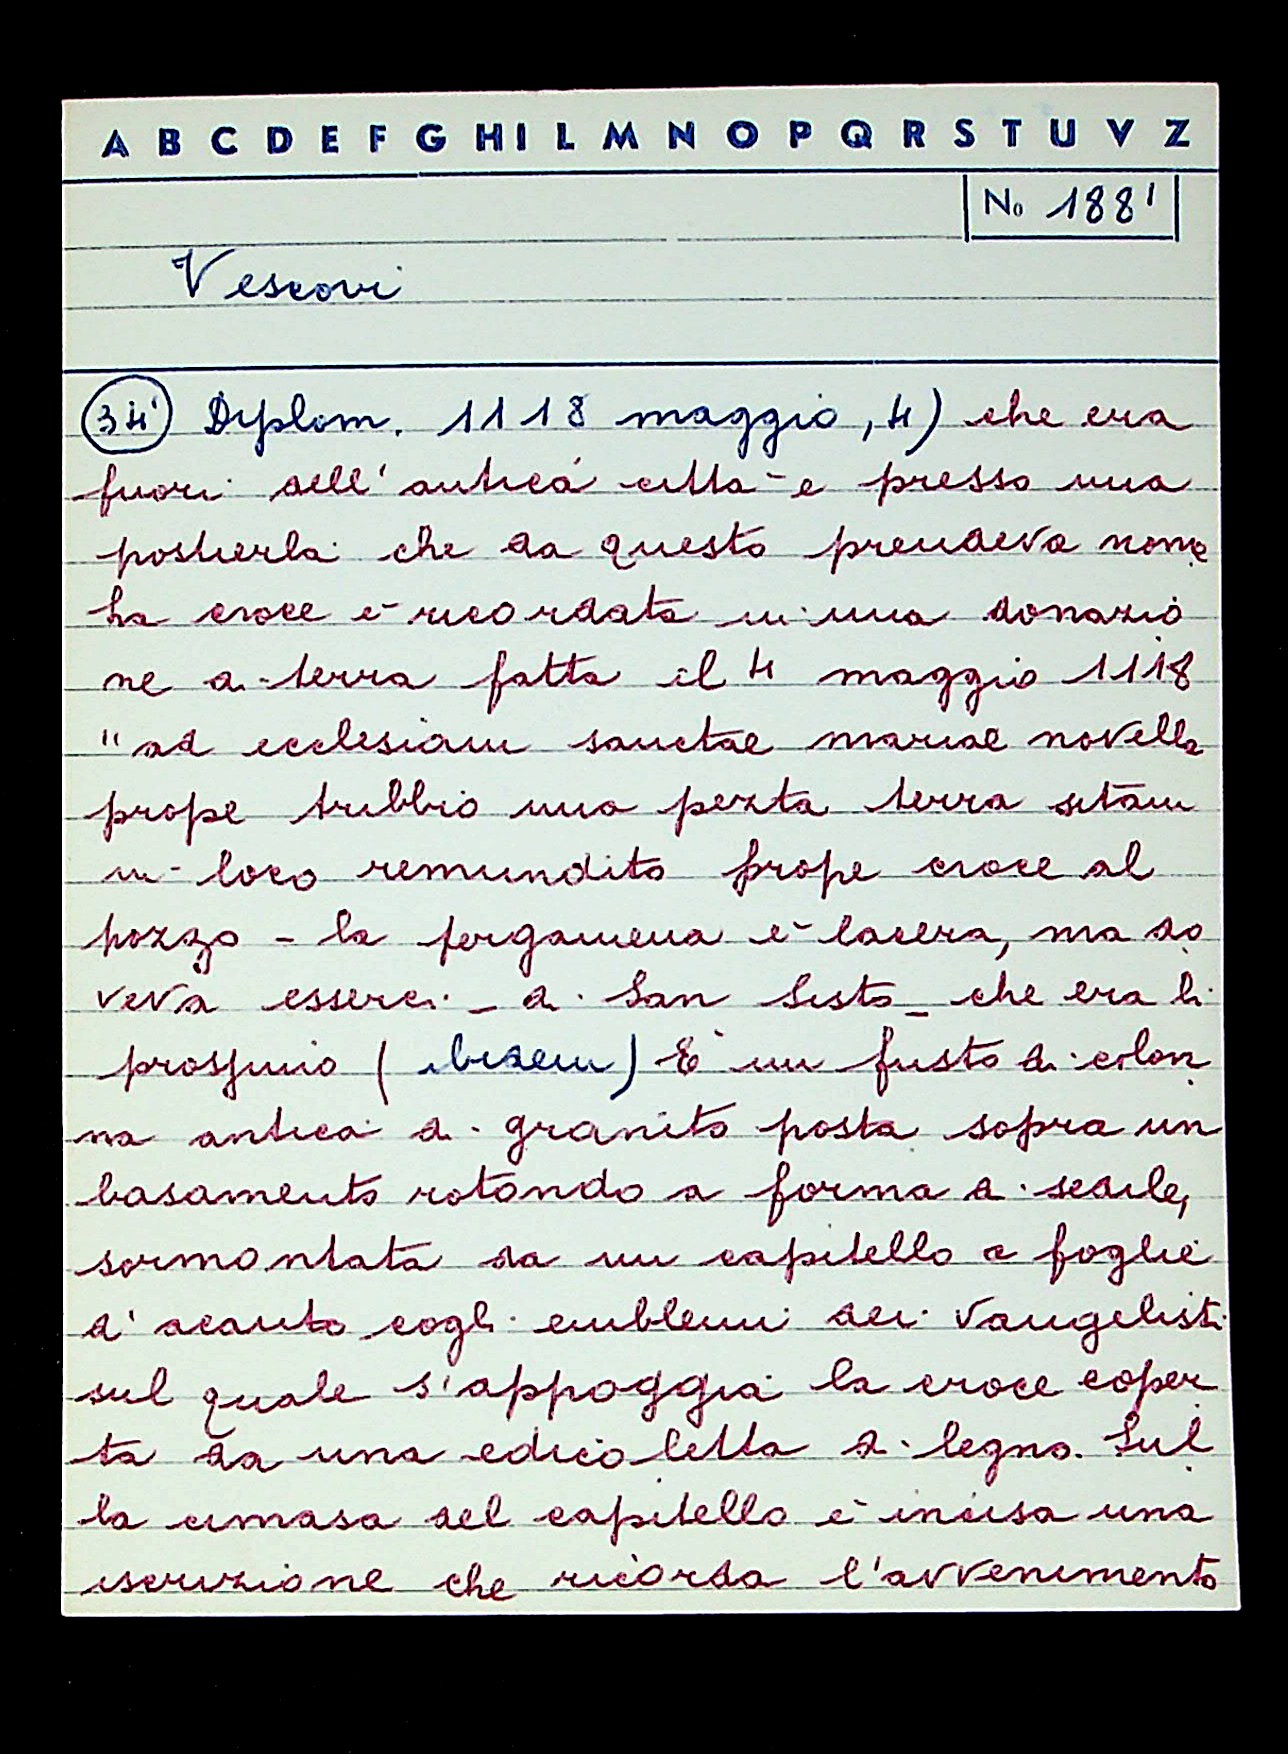 A B C D E F G H I L M N O P Q R S T U V Z
No 188'
Vescovi
34' Diplom. 1118 maggio, 4) che era
fuori dell'antica città e presso una
postierla che da questo prendeva nome
La croce è ricordata in una donazio
ne di terra fatta il 4 maggio 1118
"ad ecclesiam sanctae mariae novella
prope trebbio una pezzta terra sitam
in loco remundito prope croce al
pozzo - la pergamena è lacera, ma do
veva esserci - di San Sisto - che era li
prossimo (ibidem) È un fusto di colon
na antica di granito posta sopra un
basamento rotondo a forma di sedile,
sormontata da un capitello a foglie
d'acanto cogli emblemi dei Vangelisti
sul quale s'appoggia la croce coper
ta da una edicoletta di legno. Sul
la cimasa del capitello è incisa una
iscrizione che ricorda l'avvenimento